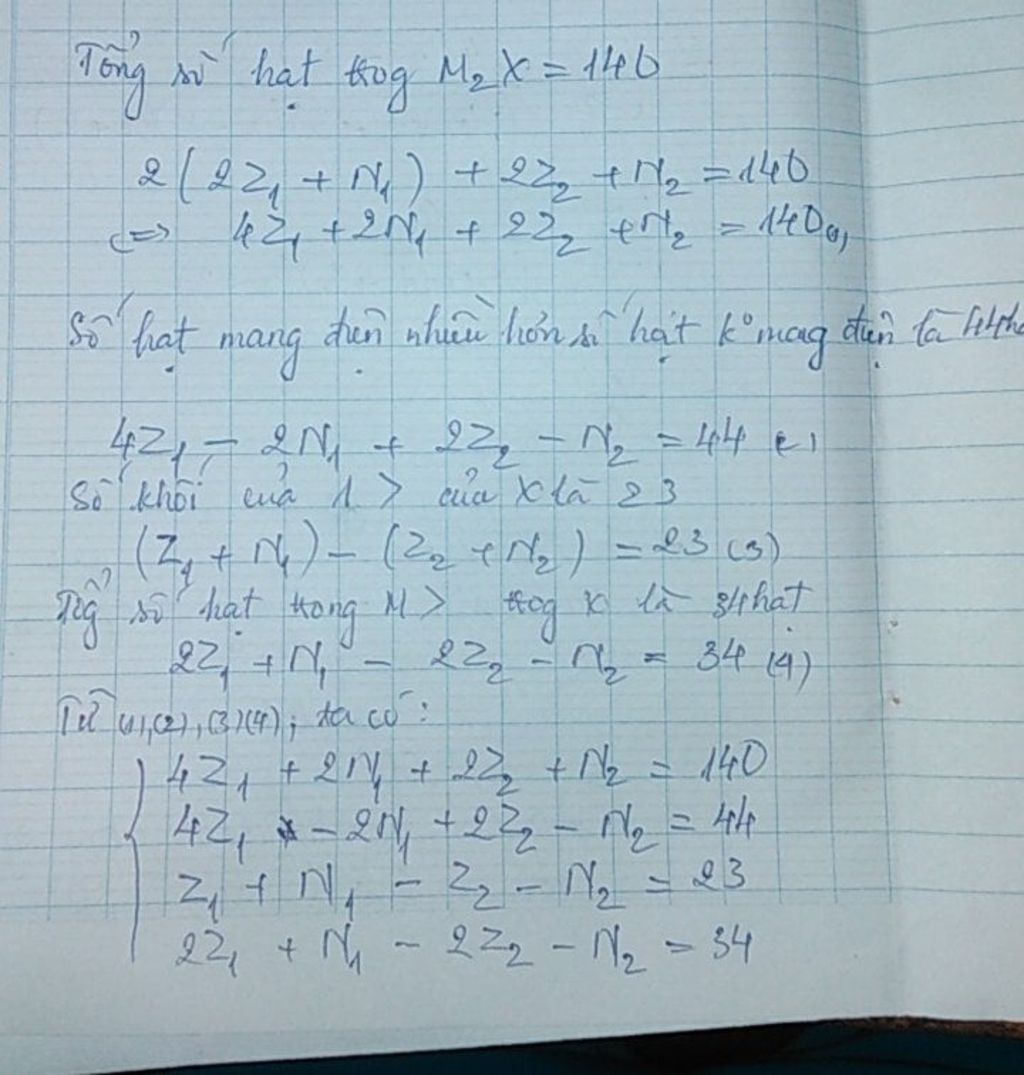 Tổng số hạt trog M₂X = 140
2(2Z₁ + N₁) + 2Z₂ + N₂ = 140
<=> 4Z₁ + 2N₁ + 2Z₂ + N₂ = 140 (1)
Số hạt mang điện nhiều hơn số hạt k° mag điện là 44 hạ
4Z₁ - 2N₁ + 2Z₂ - N₂ = 44 (2)
Số khối của > của X là 23
(Z₁ + N₁) - (Z₂ + N₂) = 23 (3)
Tổg số hạt trong M > trog X là 34 hạt
2Z₁ + N₁ - 2Z₂ - N₂ = 34 (4)
Từ (1), (2), (3) (4), ta có:
4Z₁ + 2N₁ + 2Z₂ + N₂ = 140
4Z₁ - 2N₁ + 2Z₂ - N₂ = 44
Z₁ + N₁ - Z₂ - N₂ = 23
2Z₁ + N₁ - 2Z₂ - N₂ = 34